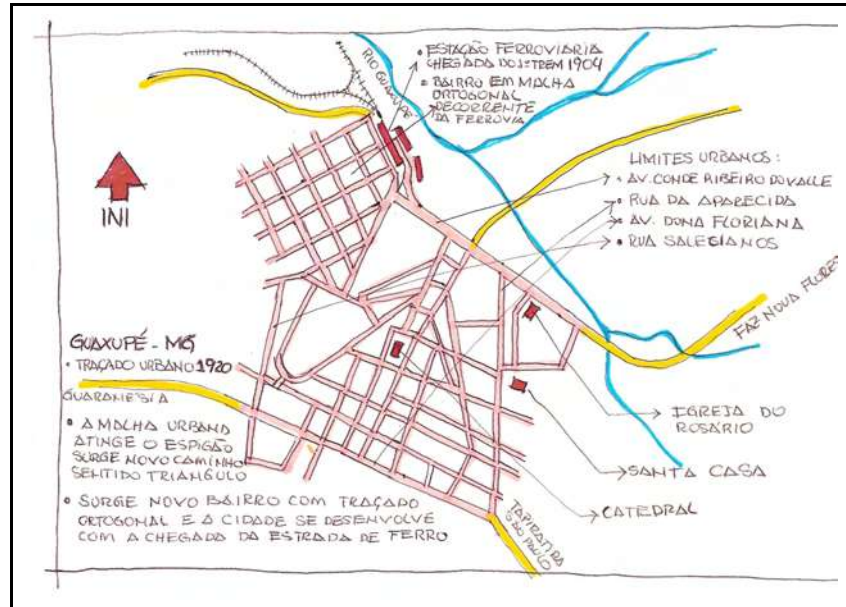 • ESTAÇÃO FERROVIARIA
CHEGADA DO 1º TREM 1904
• BAIRRO EM MALHA
ORTOGONAL
DECORRENTE
DA FERROVIA
RIO GUAXUPÉ
LIMITES URBANOS:
• AV. CONDE RIBEIRO DO VALLE
• RUA DA APARECIDA
• AV. DONA FLORIANA
• RUA SALESIANOS
INI
FAZ NOVA FLORES
GUAXUPÉ - MG
• TRAÇADO URBANO 1920
GUARANESIA
• A MALHA URBANA
ATINGE O ESPIGÃO
SURGE NOVO CAMINHO
SENTIDO TRIANGULO
• SURGE NOVO BAIRRO COM TRAÇADO
ORTOGONAL E A CIDADE SE DESENVOLVE
COM A CHEGADA DA ESTRADA DE FERRO
IGREJA DO
ROSÁRIO
SANTA CASA
CATEDRAL
TAPIRATIBA
SÃO PAULO